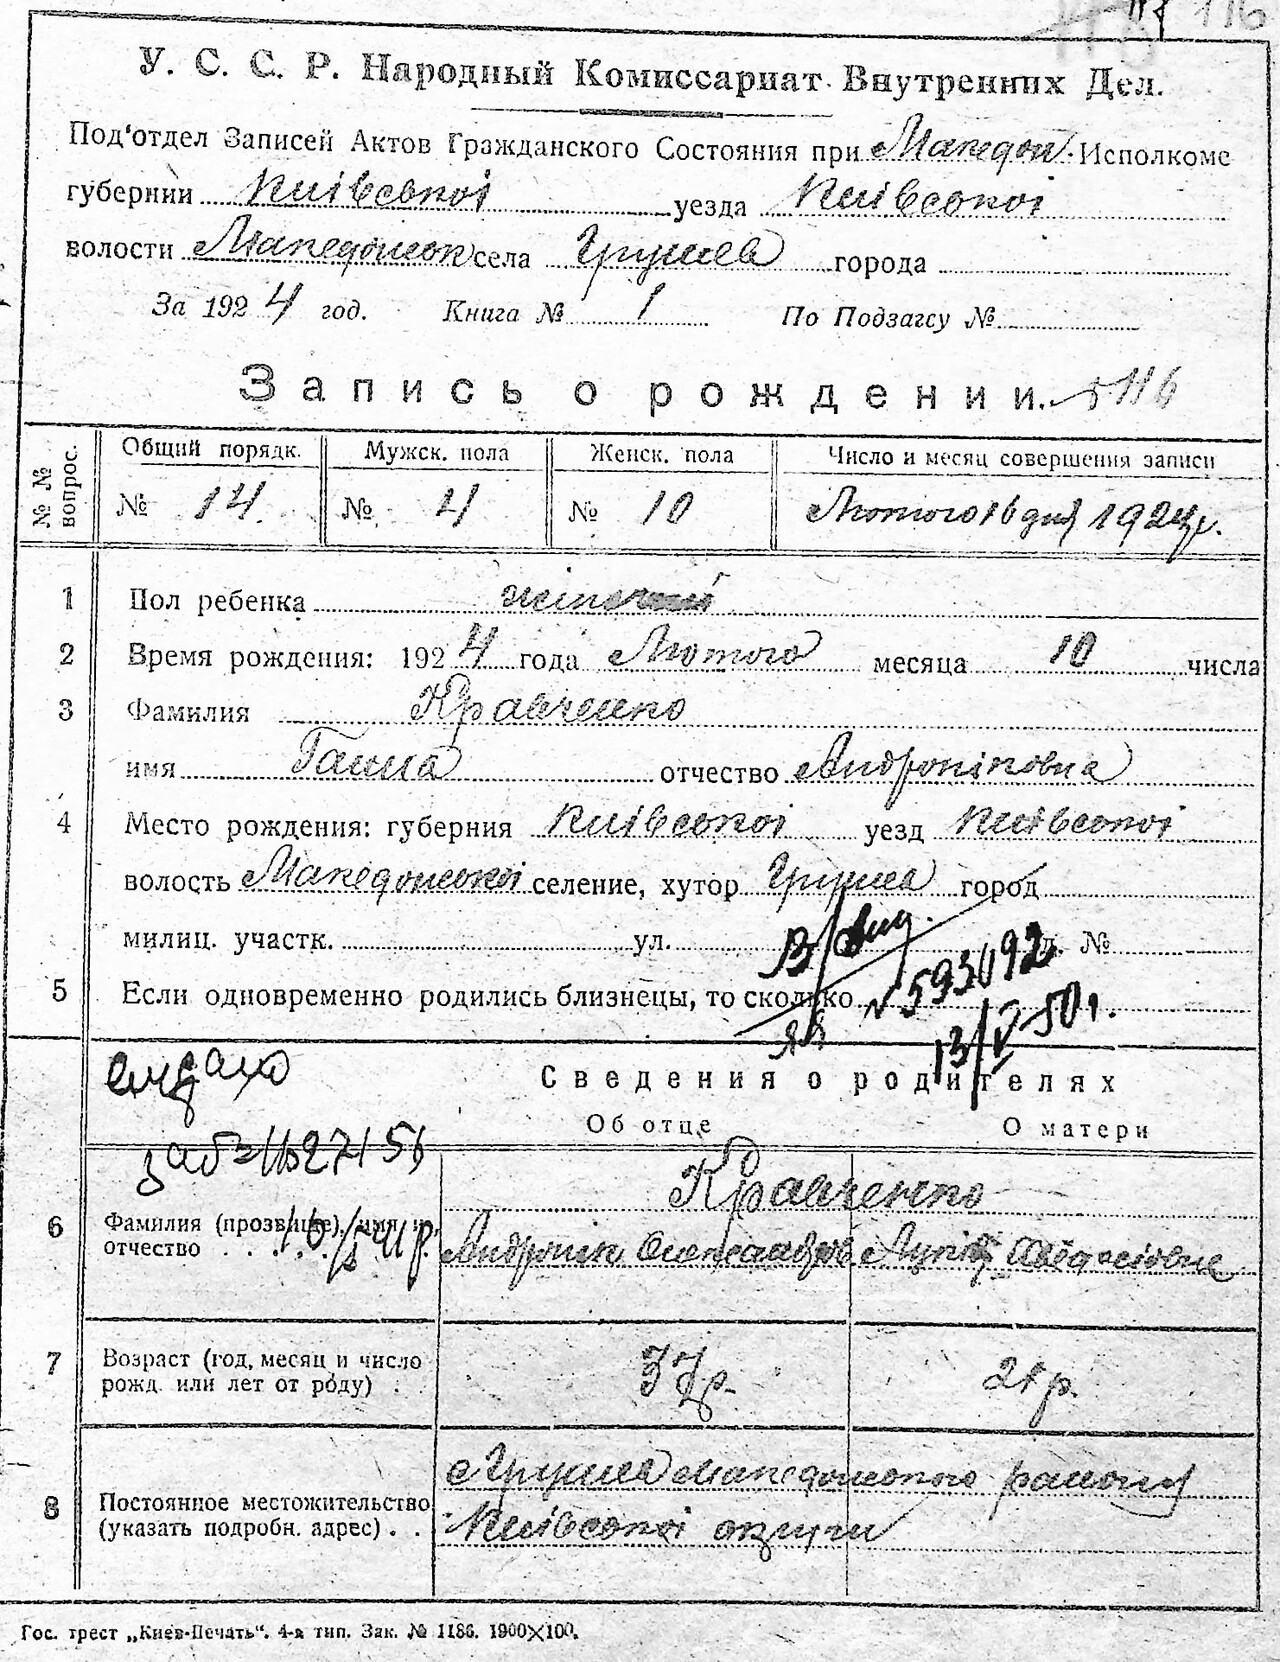 116
У. С. С. Р. Народный Комиссариат Внутренних Дел.
Под'отдел Записей Актов Гражданского Состояния при Македон. Исполкоме
губернии Київської уезда Київської
волости Македонськ села Грушев города
За 1924 год. Книга № 1 По Подзагсу №
Запись о рождении. 116
№ № вопрос. Общий порядк. Мужск. пола Женск. пола Число и месяц совершения записи
№ 14 № 4 № 10 Лютого 16 дня 1924 р.
1 Пол ребенка жіночий
2 Время рождения: 1924 года Лютого месяца 10 числа
3 Фамилия Кравченко
имя Ганна отчество Андроніковна
4 Место рождения: губерния Київської уезд Київської
волость Македонської селение, хутор Грушев город
милиц. участк. ул. д. №
5 Если одновременно родились близнецы, то сколько
13/V-50г.
Сведения о родителях
Об отце О матери
Кравченко
6 Фамилия (прозвище), имя и отчество . . . .
Андронік Олександров
7 Возраст (год, месяц и число рожд. или лет от роду) . 37 р. 21 р.
8 Постоянное местожительство (указать подробн. адрес) . .
с Грушев Македонського района
Київської округи
Гос. трест „Киев-Печать“. 4-я тип. Зак. № 1186. 1900×100.